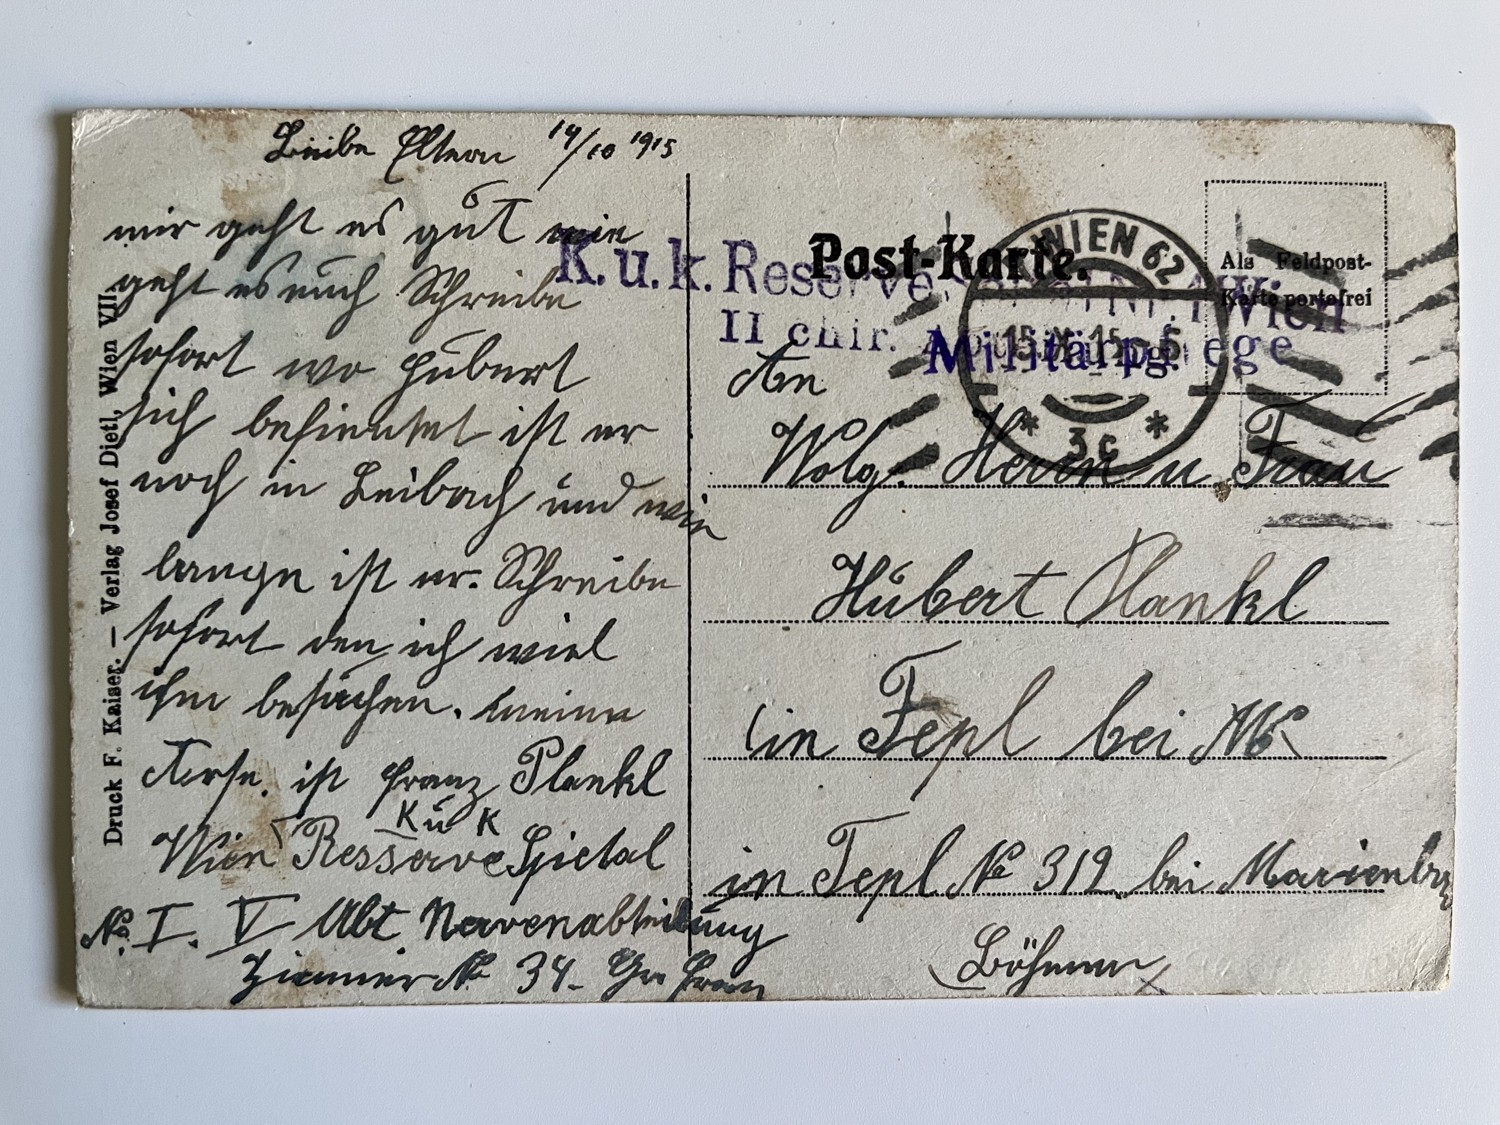 Liebe Eltern 14/10 1915
mir geht es gut wie
geht es euch Schreibe
sofort wo Hubert
sich befindet ist er
noch in Leibach und wie
lange ist er. Schreibe
sofort den ich wiel
ihn besuchen. meine
ist Franz Plankl
K u K
Wien Resserve Spietal
No. I. V Abt. Nervenabteilung
Zimmer No 34. Gr Franz
Druck F. Kaiser. — Verlag Josef Dietl, Wien VII.
Post-Karte.
K. u. k. Reserve Nr. 1 Wien
II chir.
Militärpflege
WIEN 62
15.X.15
* 3c *
Als Feldpost-
Karte portofrei
An
Wolg. Herrn u Frau
Hubert Plankl
in Tepl bei
in Tepl No 319 bei
Böhmen